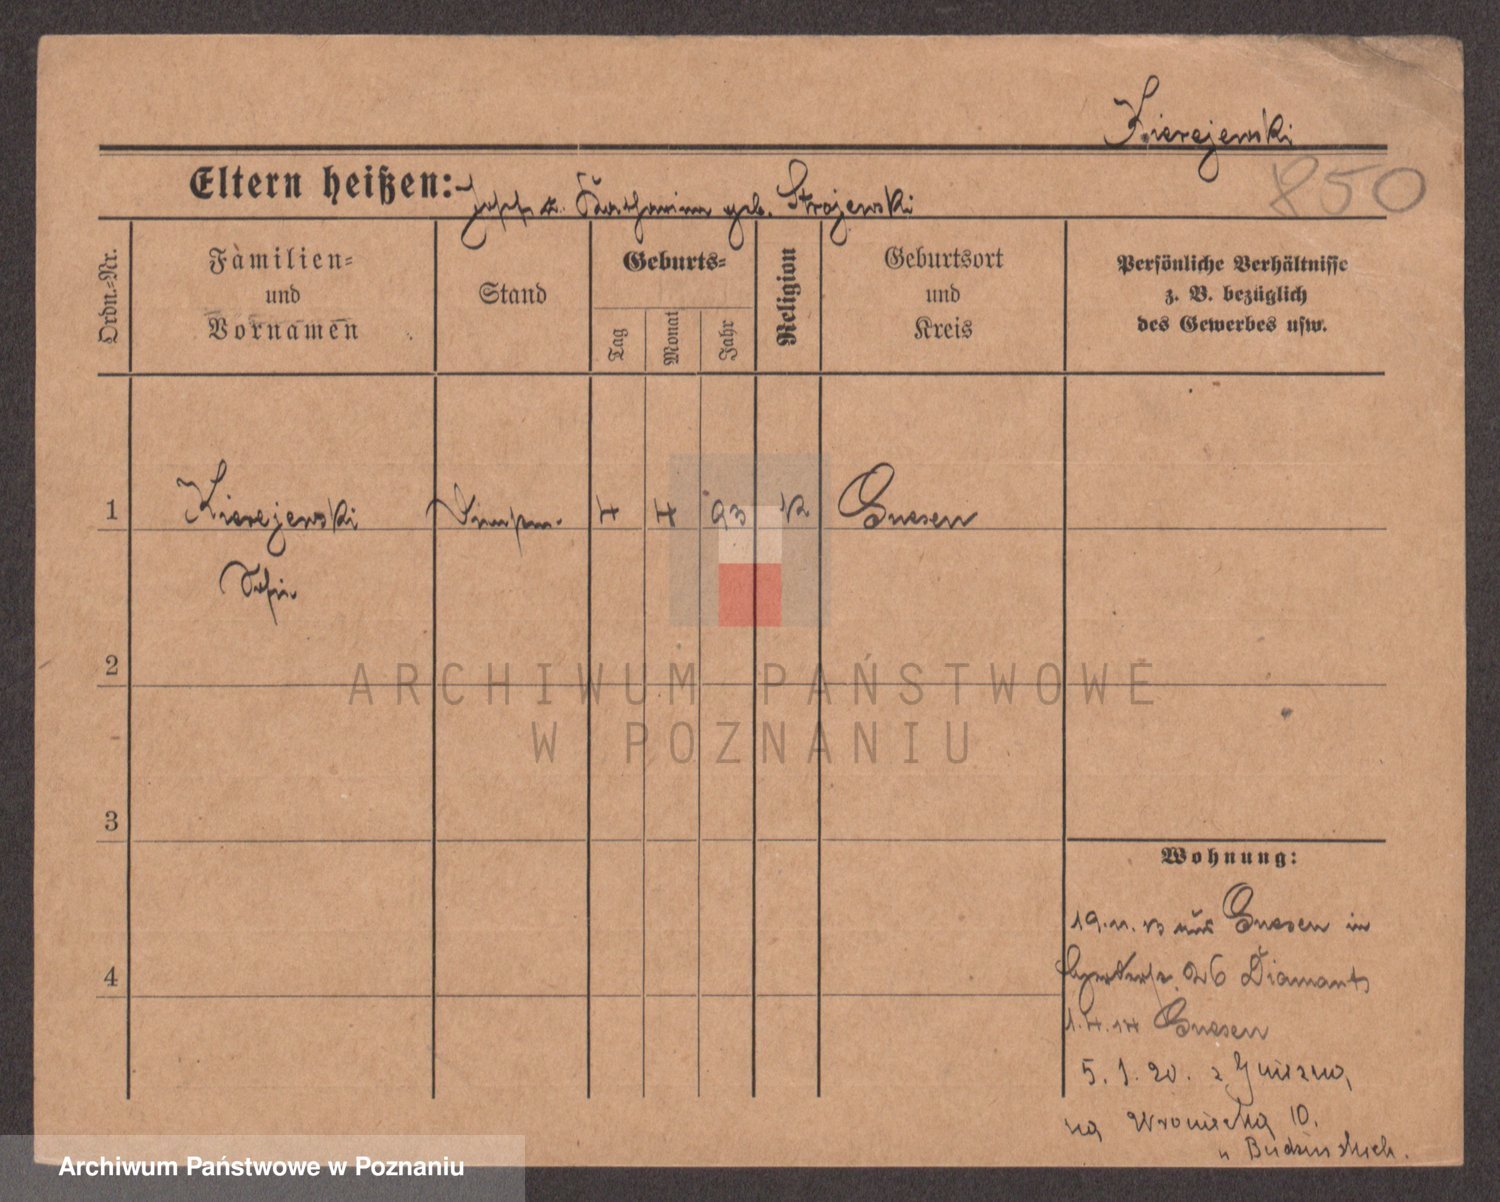 Kierejewski
850
Eltern heißen: Joseph u. Katharina geb. Strojewski
Ordn.-Nr.
Familien-
und
Vornamen
Stand
Geburts-
Tag
Monat
Jahr
Religion
Geburtsort
und
Kreis
Persönliche Verhältnisse
z. B. bezüglich
des Gewerbes usw.
1 Kierejewski 4 4 93 K Gnesen
2
3
4
Wohnung:
19.11.13 aus Gnesen in
26 Diamant
1.4.14 Gnesen
5. 1. 20. z Gniezna,
na Wroniecką 10.
u Budzińskich.
ARCHIWUM PAŃSTWOWE
W POZNANIU
Archiwum Państwowe w Poznaniu